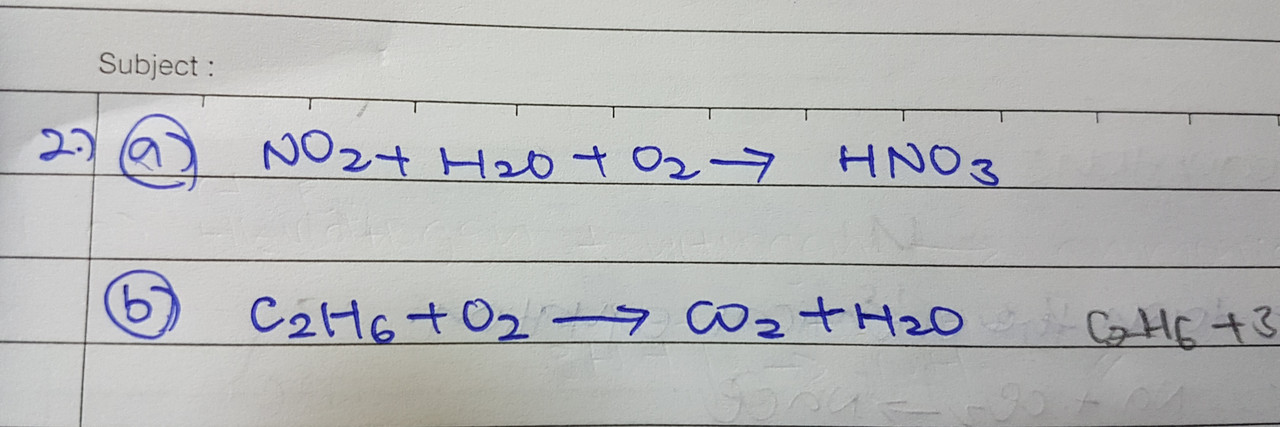 Subject :
2.) (a) NO2 + H2O + O2 → HNO3
(b) C2H6 + O2 → CO2 + H2O C2H6 + 3